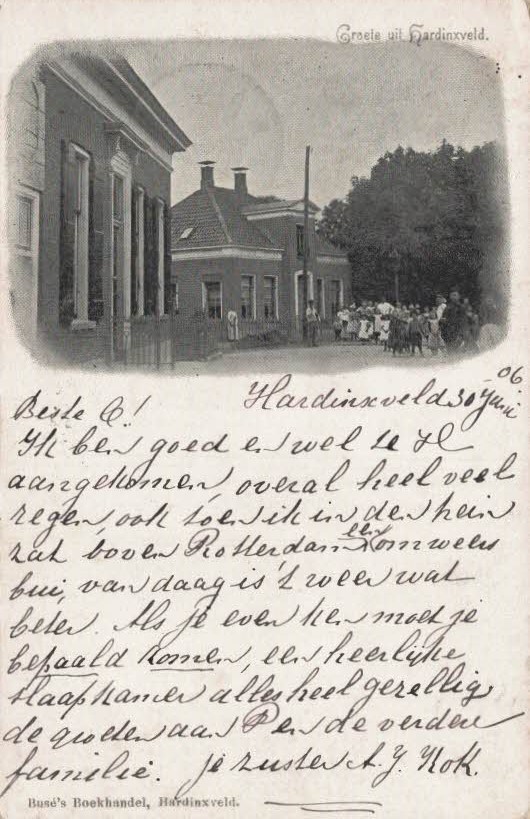 Groete uit Hardinxveld.
Hardinxveld 30 Juni
06
Beste C!
Ik ben goed en wel te H
aangekomen, overal heel veel
regen, ook toen ik in den trein
zat boven Rotterdam een onweers
bui, van daag is 't weer wat
beter. Als je even kan moet je
bepaald komen, een heerlijke
slaapkamer alles heel gezellig
de groeten aan P en de verdere
familie. Je zuster A. J. Kok.
Busé's Boekhandel, Hardinxveld.